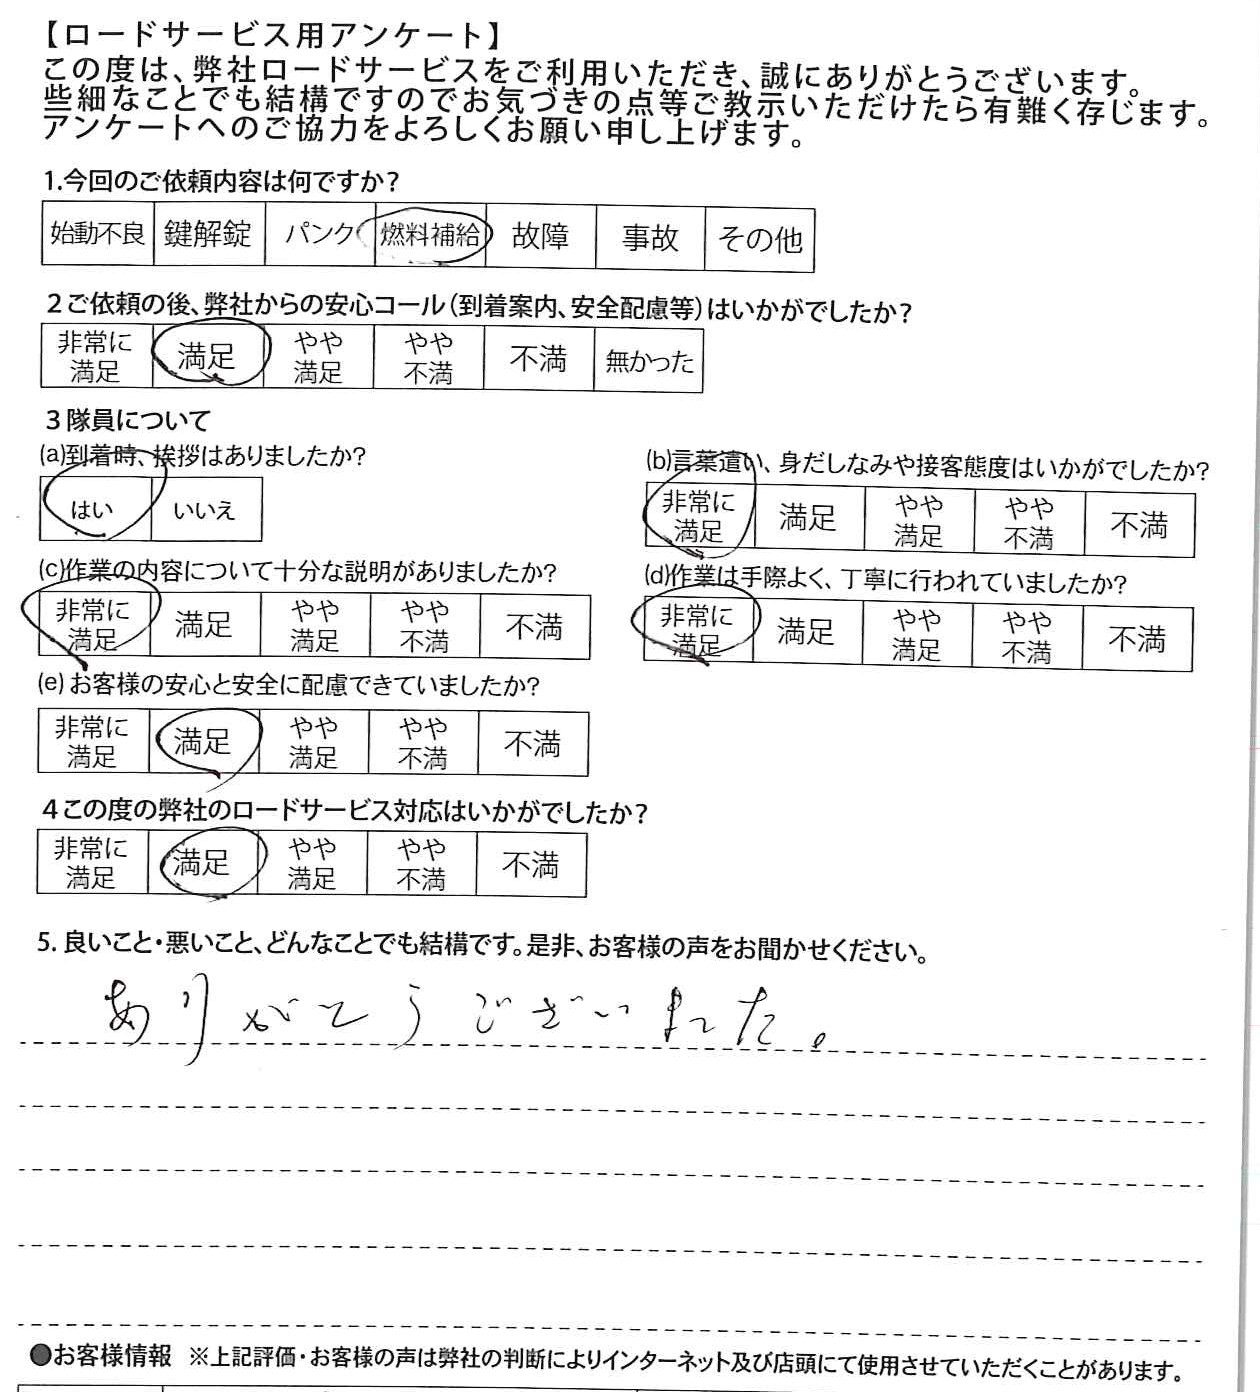 【ロードサービス用アンケート】
この度は、弊社ロードサービスをご利用いただき、誠にありがとうございます。
些細なことでも結構ですのでお気づきの点等ご教示いただけたら有難く存じます。
アンケートへのご協力をよろしくお願い申し上げます。
1.今回のご依頼内容は何ですか?
始動不良 鍵解錠 パンク 燃料補給 故障 事故 その他
2ご依頼の後、弊社からの安心コール(到着案内、安全配慮等)はいかがでしたか?
非常に満足 満足 やや満足 やや不満 不満 無かった
3隊員について
(a)到着時、挨拶はありましたか?
はい いいえ
(b)言葉遣い、身だしなみや接客態度はいかがでしたか?
非常に満足 満足 やや満足 やや不満 不満
(c)作業の内容について十分な説明がありましたか?
非常に満足 満足 やや満足 やや不満 不満
(d)作業は手際よく、丁寧に行われていましたか?
非常に満足 満足 やや満足 やや不満 不満
(e)お客様の安心と安全に配慮できていましたか?
非常に満足 満足 やや満足 やや不満 不満
4この度の弊社のロードサービス対応はいかがでしたか?
非常に満足 満足 やや満足 やや不満 不満
5. 良いこと・悪いこと、どんなことでも結構です。是非、お客様の声をお聞かせください。
ありがとうございました。
●お客様情報 ※上記評価・お客様の声は弊社の判断によりインターネット及び店頭にて使用させていただくことがあります。